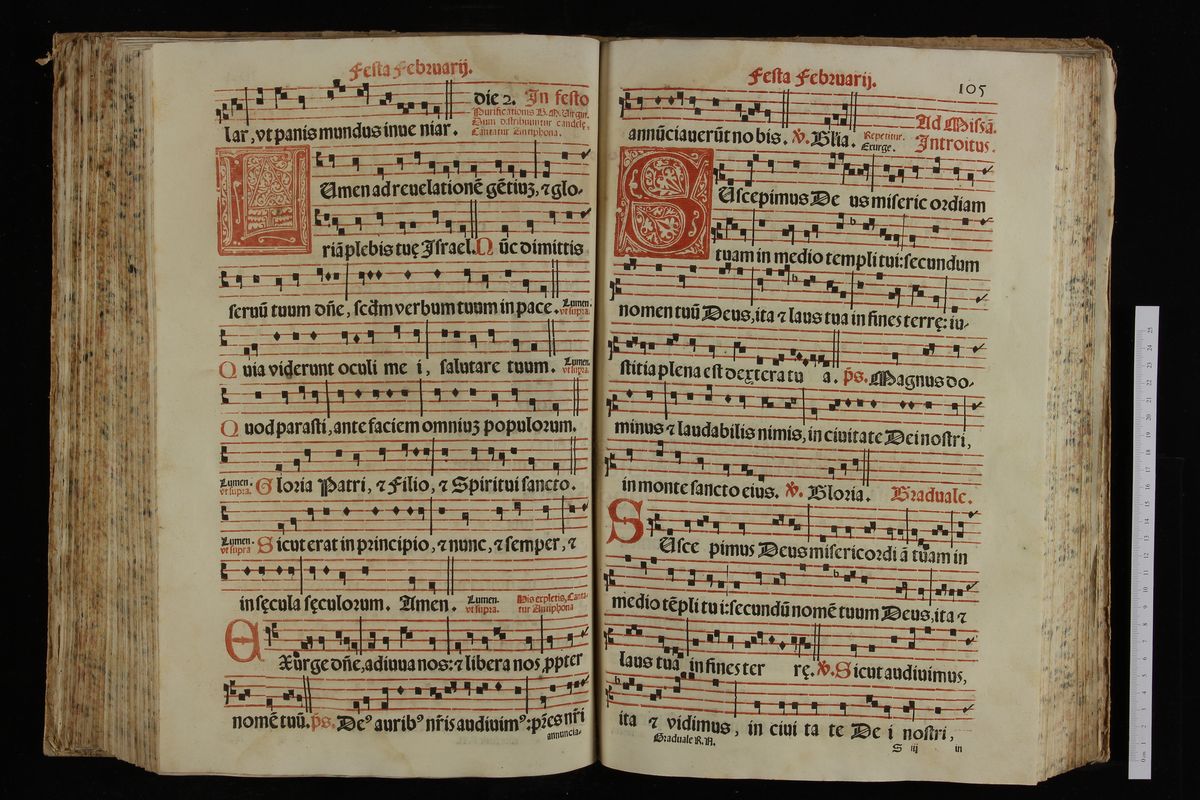 Festa Februarij.
die 2. In festo
Purificationis B. M. Virgin.
Dum distribuuntur candelę,
Cantatur Antiphona.
lar, vt panis mundus inue niar.
LUmen ad reuelationē gētiuʒ, ⁊ glo-
riā plebis tuę Israel. N ūc dimittis
seruū tuum dn̄e, scd̄m verbum tuum in pace. Lumen.
vt supra.
Q uia viderunt oculi me i, salutare tuum. Lumen.
vt supra.
Q uod parasti, ante faciem omniuʒ populorum.
Lumen.
vt supra. G loria Patri, ⁊ Filio, ⁊ Spiritui sancto.
Lumen.
vt supra S icut erat in principio, ⁊ nunc, ⁊ semper, ⁊
in sęcula sęculorum. Amen. Lumen.
vt supra. His expletis, Canta-
tur Antiphona
EXurge dn̄e, adiuua nos: ⁊ libera nos ꝓpter
nomē tuū. ps. Deꝰ auribꝰ nr̄is audiuimꝰ: pr̄es nr̄i
annuncia-
Festa Februarij. 105
annūciauerūt no bis. ℣. Glīa. Repetitur.
Exurge. Ad Missā.
Introitus.
SUscepimus De us miseric ordiam
tuam in medio templi tui: secundum
nomen tuū Deus, ita ⁊ laus tua in fines terrę: iu-
stitia plena est dextera tu a. ps. Magnus do-
minus ⁊ laudabilis nimis, in ciuitate Dei nostri,
in monte sancto eius. ℣. Gloria. Graduale.
SUsce pimus Deus misericordi ā tuam in
medio tēpli tu i: secundū nomē tuum Deus, ita ⁊
laus tua in fines ter rę. ℣. S icut audiuimus,
ita ⁊ vidimus, in ciui ta te De i nostri,
Graduale R. A. S iij in